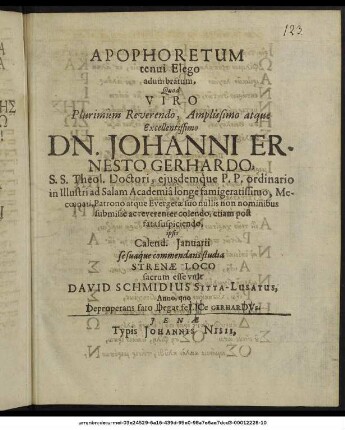 123
APOPHORETUM
tenui Elego
adumbratum,
Quod
VIRO
Plurimum Reverendo, Amplissimo atque
Excellentissimo
DN. JOHANNI ER-
NESTO GERHARDO,
S. S. Theol. Doctori, ejusdemque P. P. ordinario
in Illustri ad Salam Academiâ longe famigeratissimo, Me-
cœnati, Patrono atque Evergetæ suo nullis non nominibus
submisse ac reverenter colendo, etiam post
fata suspiciendo,
ipsis
Calend. Januarii
se suaque commendans studia
STRENÆ LOCO
sacrum esse vult
DAVID SCHMIDIUS SITTA-Lusatus,
Anno, quo
Deproperans fato
GERHARDVs.
JENÆ
Typis JOHANNIS NISII,